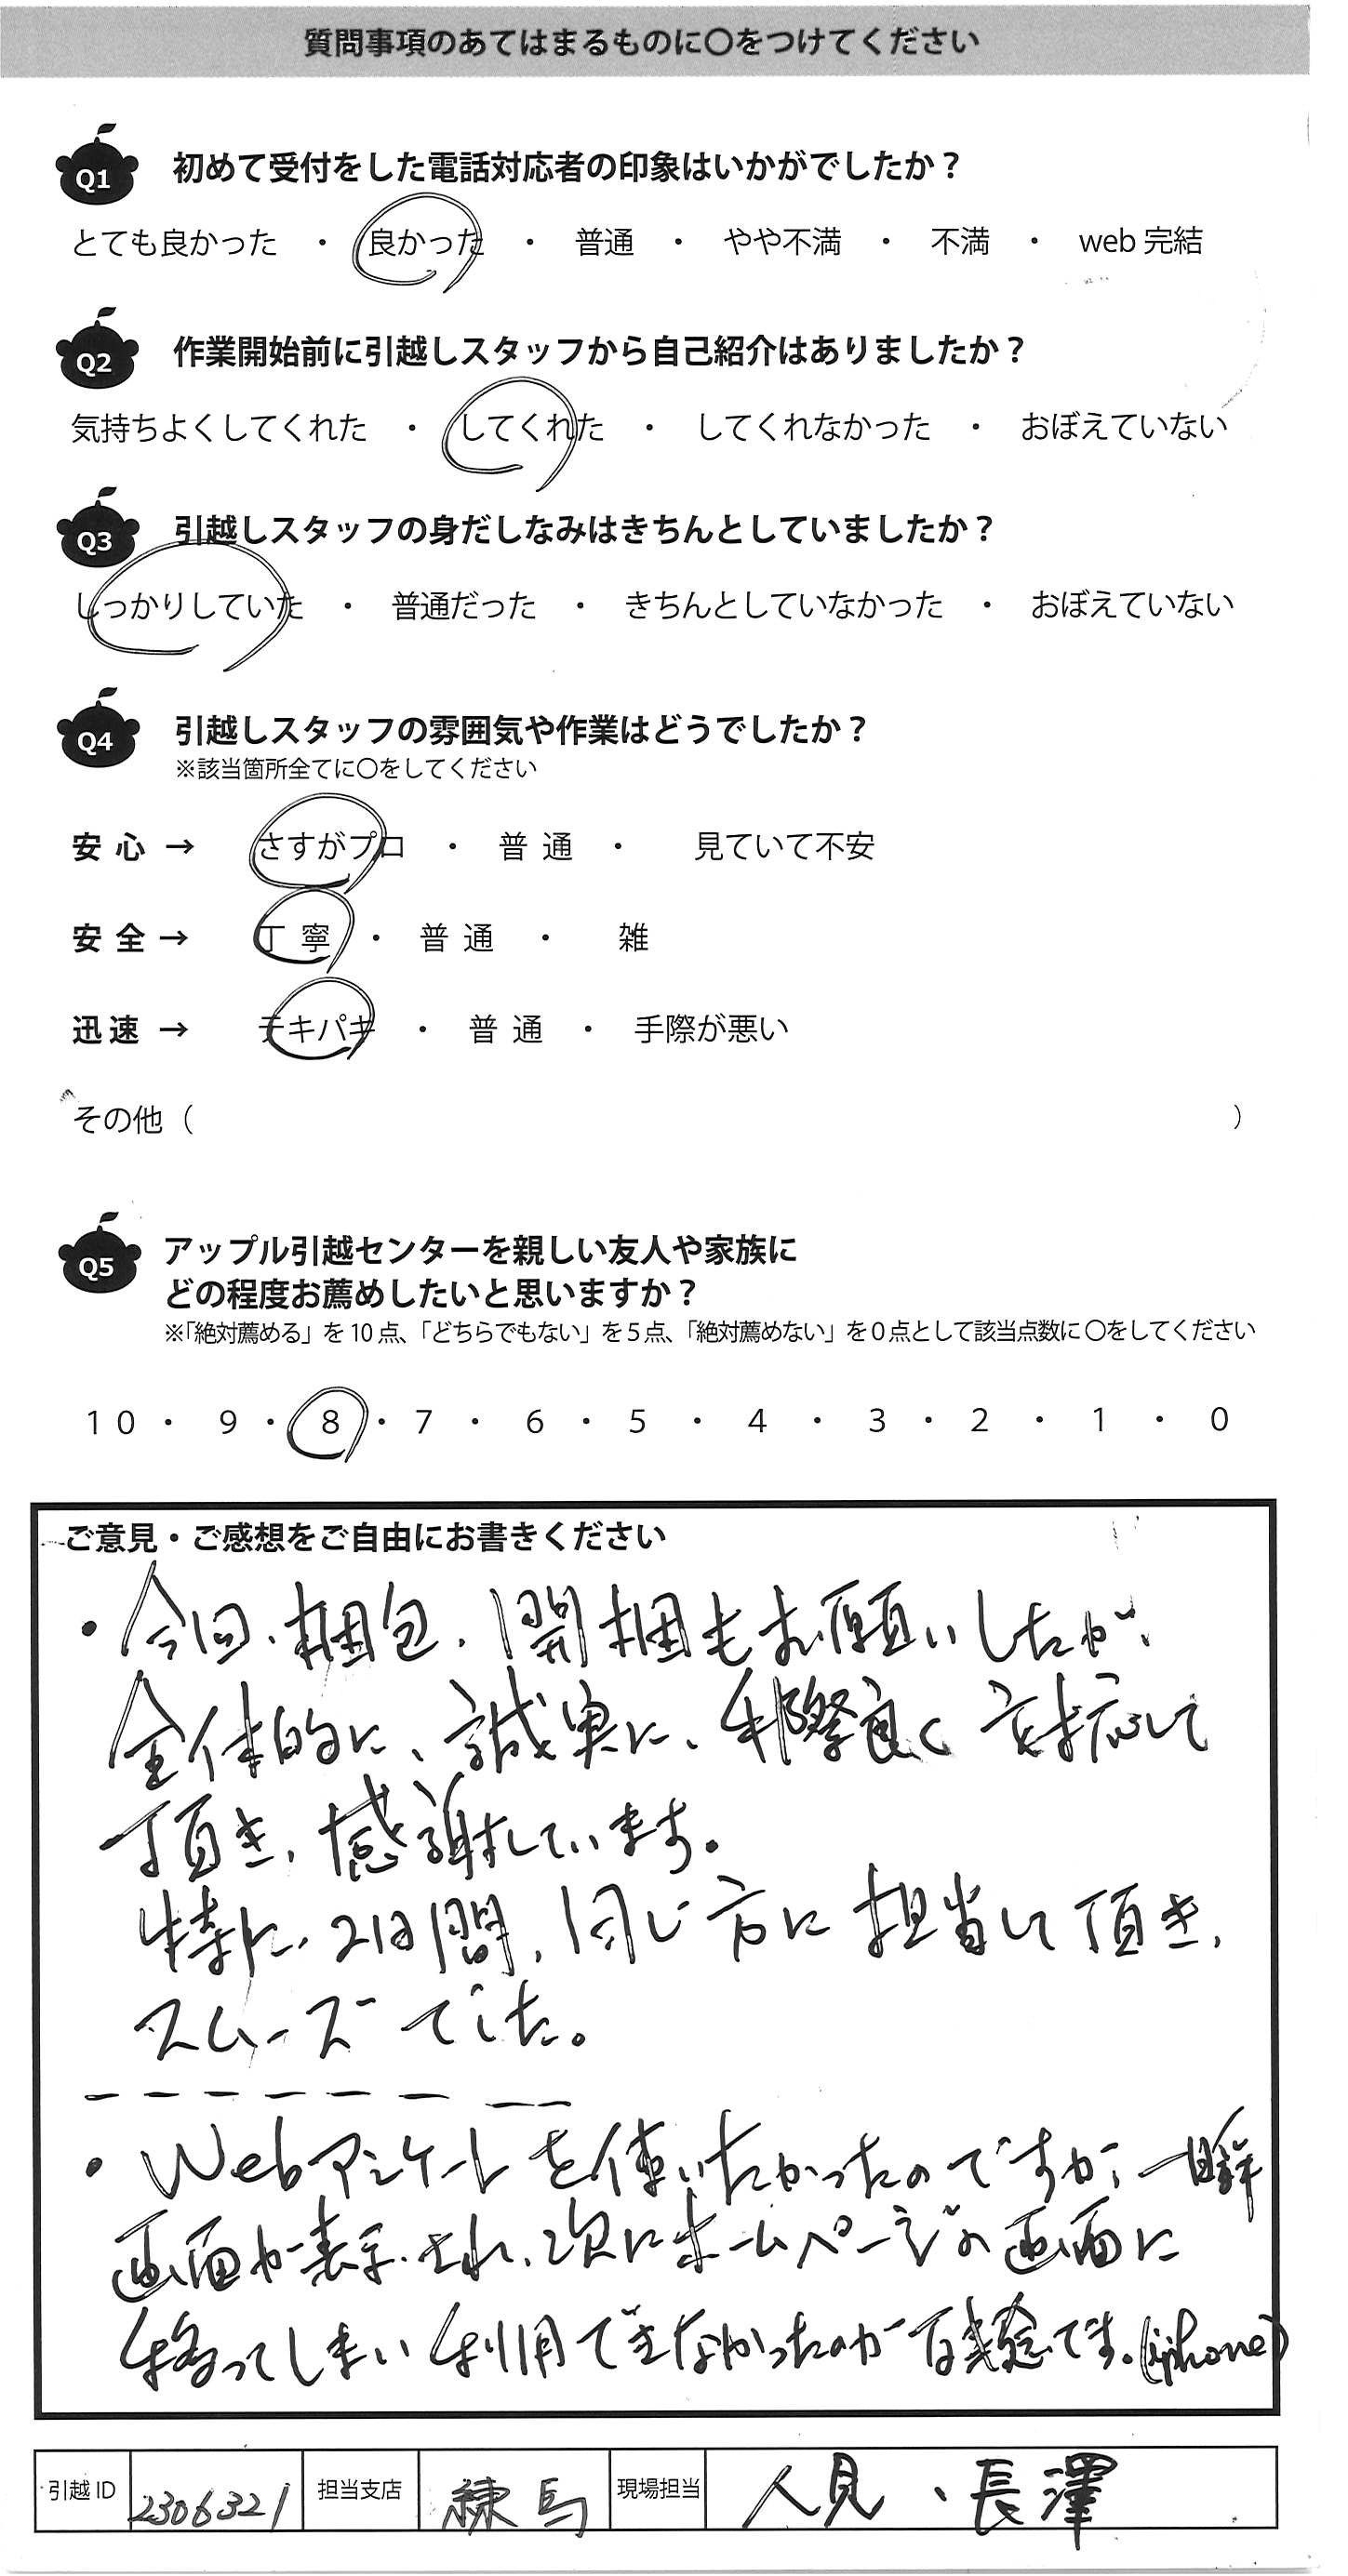 質問事項のあてはまるものに〇をつけてください
Q1 初めて受付をした電話対応者の印象はいかがでしたか？
とても良かった ・ 良かった ・ 普通 ・ やや不満 ・ 不満 ・ web 完結
Q2 作業開始前に引越しスタッフから自己紹介はありましたか？
気持ちよくしてくれた ・ してくれた ・ してくれなかった ・ おぼえていない
Q3 引越しスタッフの身だしなみはきちんとしていましたか？
しっかりしていた ・ 普通だった ・ きちんとしていなかった ・ おぼえていない
Q4 引越しスタッフの雰囲気や作業はどうでしたか？
※該当箇所全てに〇をしてください
安心 → さすがプロ ・ 普通 ・ 見ていて不安
安全 → 丁寧 ・ 普通 ・ 雑
迅速 → テキパキ ・ 普通 ・ 手際が悪い
その他（ ）
Q5 アップル引越センターを親しい友人や家族に
どの程度お薦めしたいと思いますか？
※「絶対薦める」を 10 点、「どちらでもない」を 5 点、「絶対薦めない」を 0 点として該当点数に 〇をしてください
10 ・ 9 ・ 8 ・ 7 ・ 6 ・ 5 ・ 4 ・ 3 ・ 2 ・ 1 ・ 0
ご意見・ご感想をご自由にお書きください
・今回、梱包、開梱もお願いしたが、
全体的に、誠実に、手際良く 対応して
頂き、感謝しています。
特に、2日間、同じ方に担当して頂き、
スムーズでした。
・Webアンケートを使いたかったのですが、一瞬
画面が表示され、次にホームページの画面に
移ってしまい利用できなかったのが残念です。(iphone)
引越 ID 2306321 担当支店 練馬 現場担当 人見、長澤